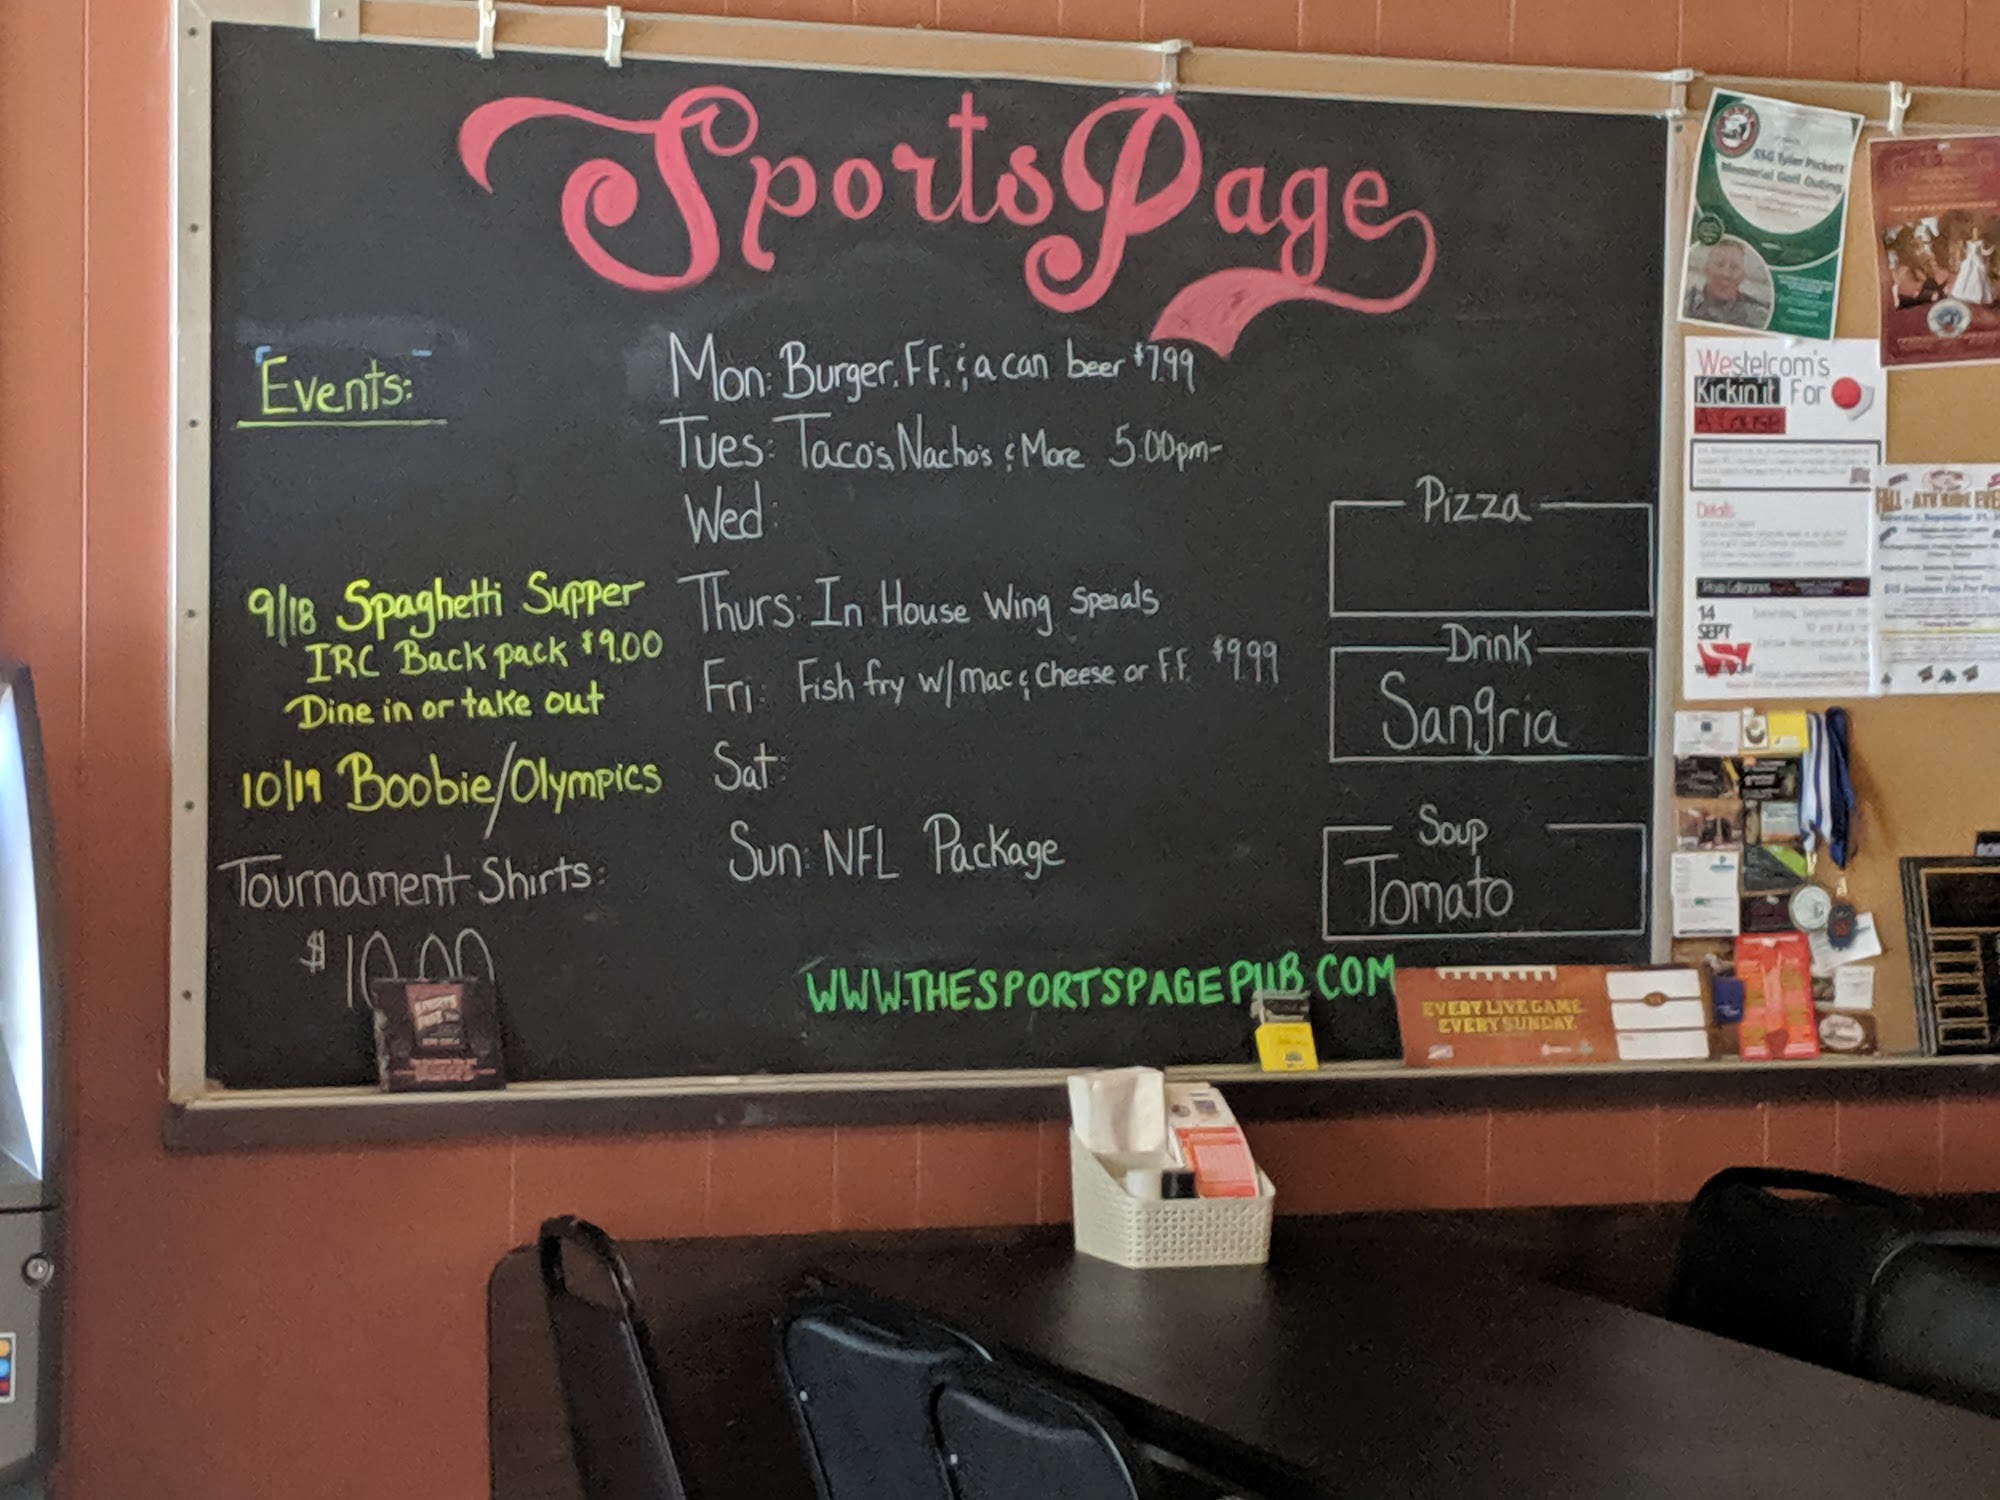 SportsPage
Events:
9/18 Spaghetti Supper
IRC Back pack $9.00
Dine in or take out
10/19 Boobie/Olympics
Tournament Shirts:
$10.00
Mon: Burger, F.F. & a can beer $7.99
Tues: Taco's, Nacho's & More 5:00pm-
Wed:
Thurs: In House Wing Speials
Fri: Fish fry w/ mac & Cheese or F.F. $9.99
Sat:
Sun: NFL Package
WWW.THESPORTSPAGEPUB.COM
Pizza
Drink
Sangria
Soup
Tomato
SSG Tyler Pickett
Memorial Golf Outing
Westelcom's
Kickin'it For
A Cause
Details
14
SEPT
FALL - ATV RIDE
EVERY LIVE GAME.
EVERY SUNDAY.